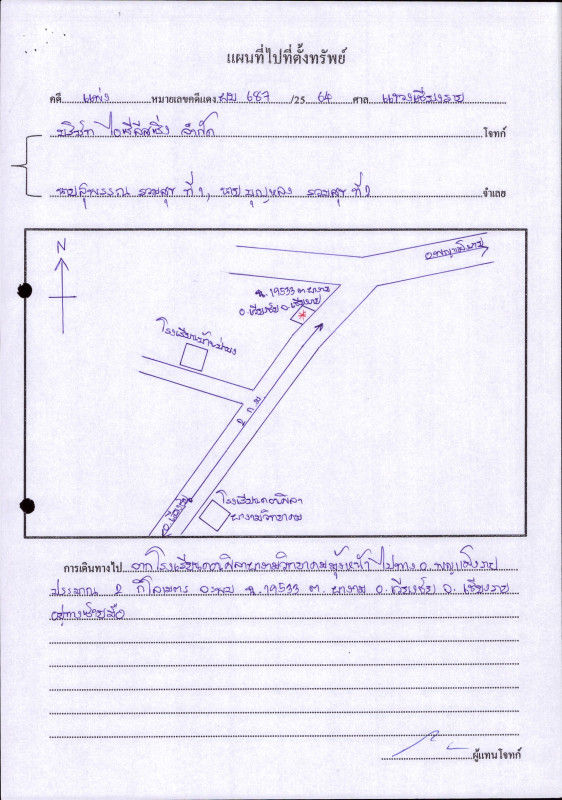 แผนที่ไปที่ตั้งทรัพย์
คดี แพ่ง หมายเลขคดีแดง ผบ 687 /25 64 ศาล แขวงเชียงราย
บริษัท ไอซีลิสซิ่ง จำกัด โจทก์
นายสุพรรณ รวมสุข ที่ 1, นายบุญหลง รวมสุข ที่ 2 จำเลย
N
อ.พญาเม็งราย
ฉ. 19533 ต. ผางาม
อ.เวียงชัย จ. เชียงราย
โรงเรียน
2 ก.ม
อ.เวียงชัย
โรงเรียนดอนศิลา
ผางามวิทยาคม
การเดินทางไป จากโรงเรียนดอนศิลาผางามวิทยาคมมุ่งหน้าไปทาง อ. พญาเม็งราย
ประมาณ 2 กิโลเมตร จะพบ ฉ. 19533 ต. ผางาม อ. เวียงชัย จ. เชียงราย
อยู่ทางซ้ายมือ
ผู้แทนโจทก์